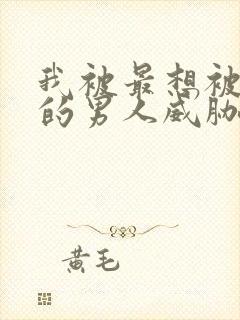 我被最想被
的男人威胁
黄毛